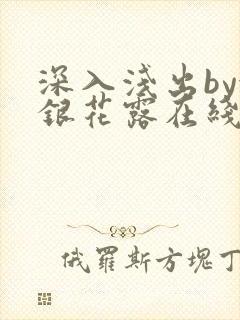 深入浅出by
銀花露在綫
俄羅斯方塊丁